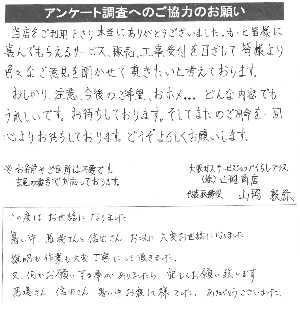 アンケート調査へのご協力のお願い
当店をご利用下さり本当にありがとうございました。もっと皆様に
喜んでもらえるサービス、販売、工事受付を目ざして皆様より
色々なご意見を聞かせて頂きたいと考えております。
おしかり、注意、今後のご希望、おホメ… どんな内容でも
うれしいです。お待ちしております。そしてまたのご用命を心
心よりお待ちしております。どうぞよろしくお願いします。
※お名前やご住所は不要です。
大阪ガスサービスショップくらしプラス
(株)山﨑商店
代表取締役 山﨑
この度はお世話になりました。
暑い中 馬場さんと お二人 大変お世話になりました。
説明も作業も大変丁寧にして頂きました。
又、何かお願いする事がありましたら、宜しくお願い致します
馬場さん さん 暑い中お疲れ様でした。ありがとうございました。